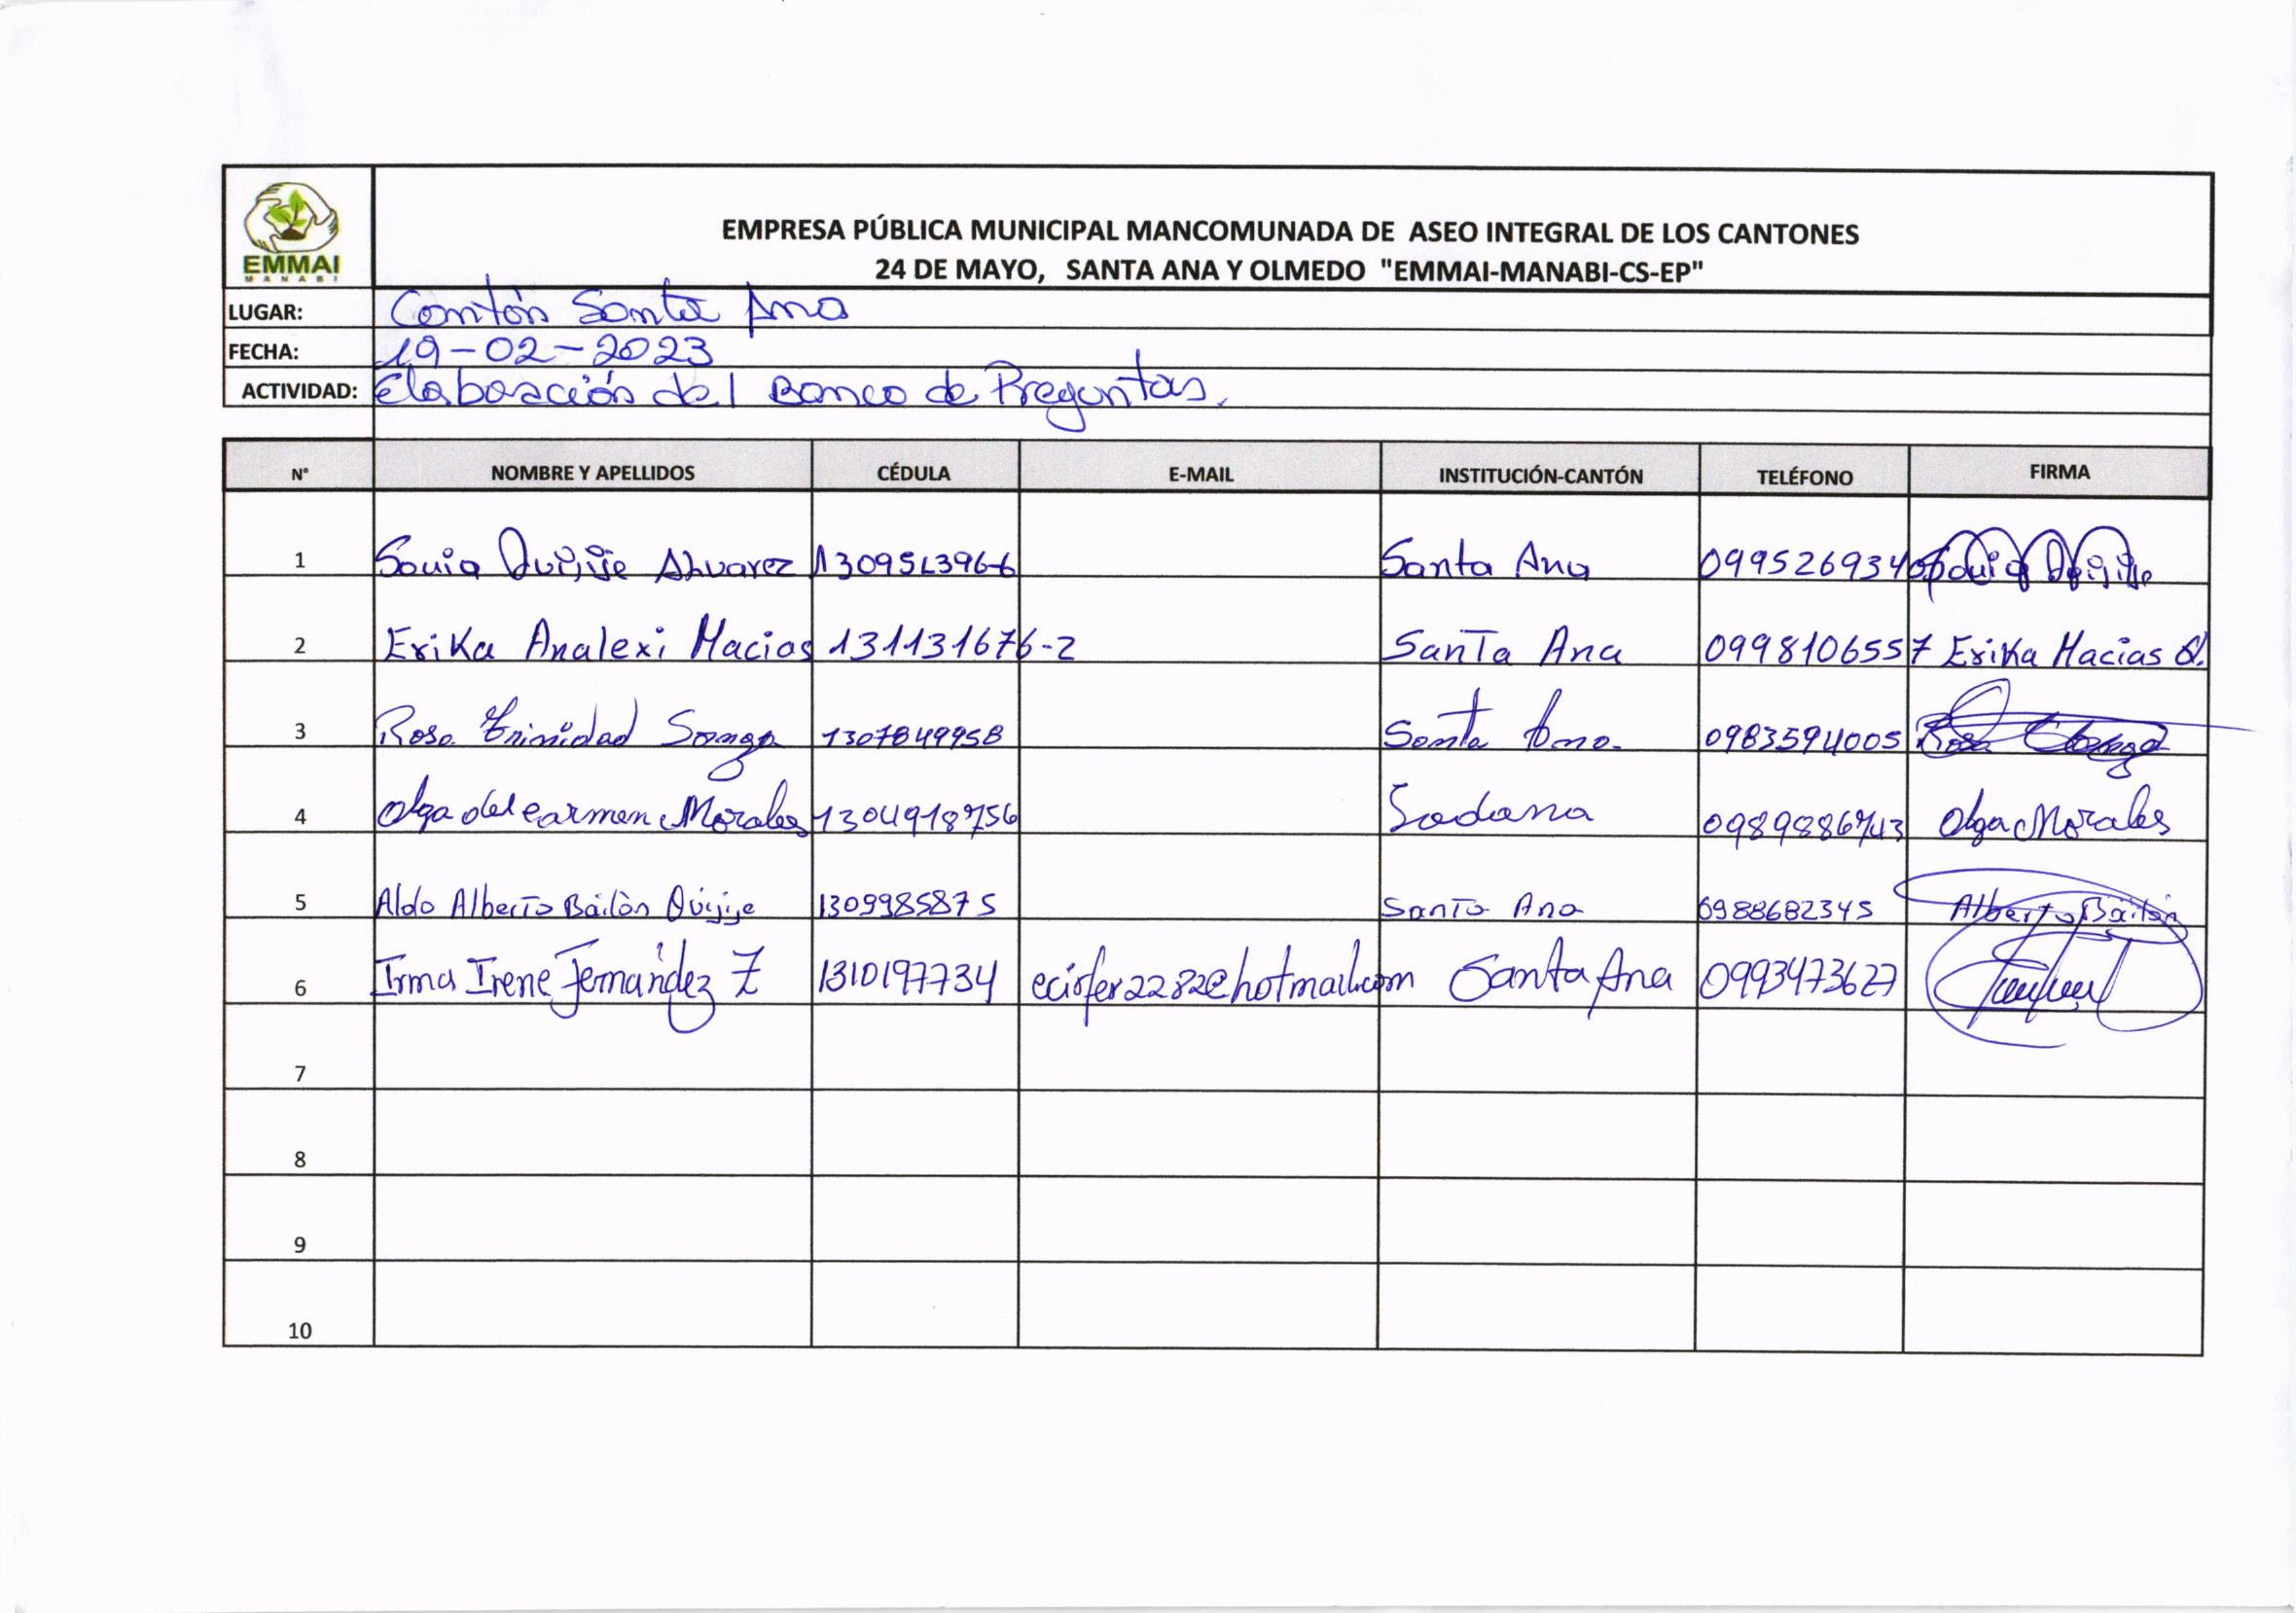 EMMAI
MANABI
EMPRESA PÚBLICA MUNICIPAL MANCOMUNADA DE ASEO INTEGRAL DE LOS CANTONES
24 DE MAYO, SANTA ANA Y OLMEDO "EMMAI-MANABI-CS-EP"
LUGAR: Cantón Santa Ana
FECHA: 19-02-2023
ACTIVIDAD: Elaboración del Banco de Preguntas.
N° NOMBRE Y APELLIDOS CÉDULA E-MAIL INSTITUCIÓN-CANTÓN TELÉFONO FIRMA
1 Sonia Quijije Alvarez Santa Ana Sonia Quijije
2 Erika Analexi Macias 131131676-2 Santa Ana 0998106557 Erika Macias Q.
3 Rosa Trinidad 1307849958 Santa Ana 0983594005 Rosa
4 Olga del Carmen Morales 1304918756 0989886743 Olga Morales
5 Aldo Alberto Bailòn Quijije 1309985875 Santa Ana 0988682345 Alberto Bailòn
6 Irma Irene Fernández Z 1310197734 ecirfer2282@hotmail.com Santa Ana 0993473627
7
8
9
10